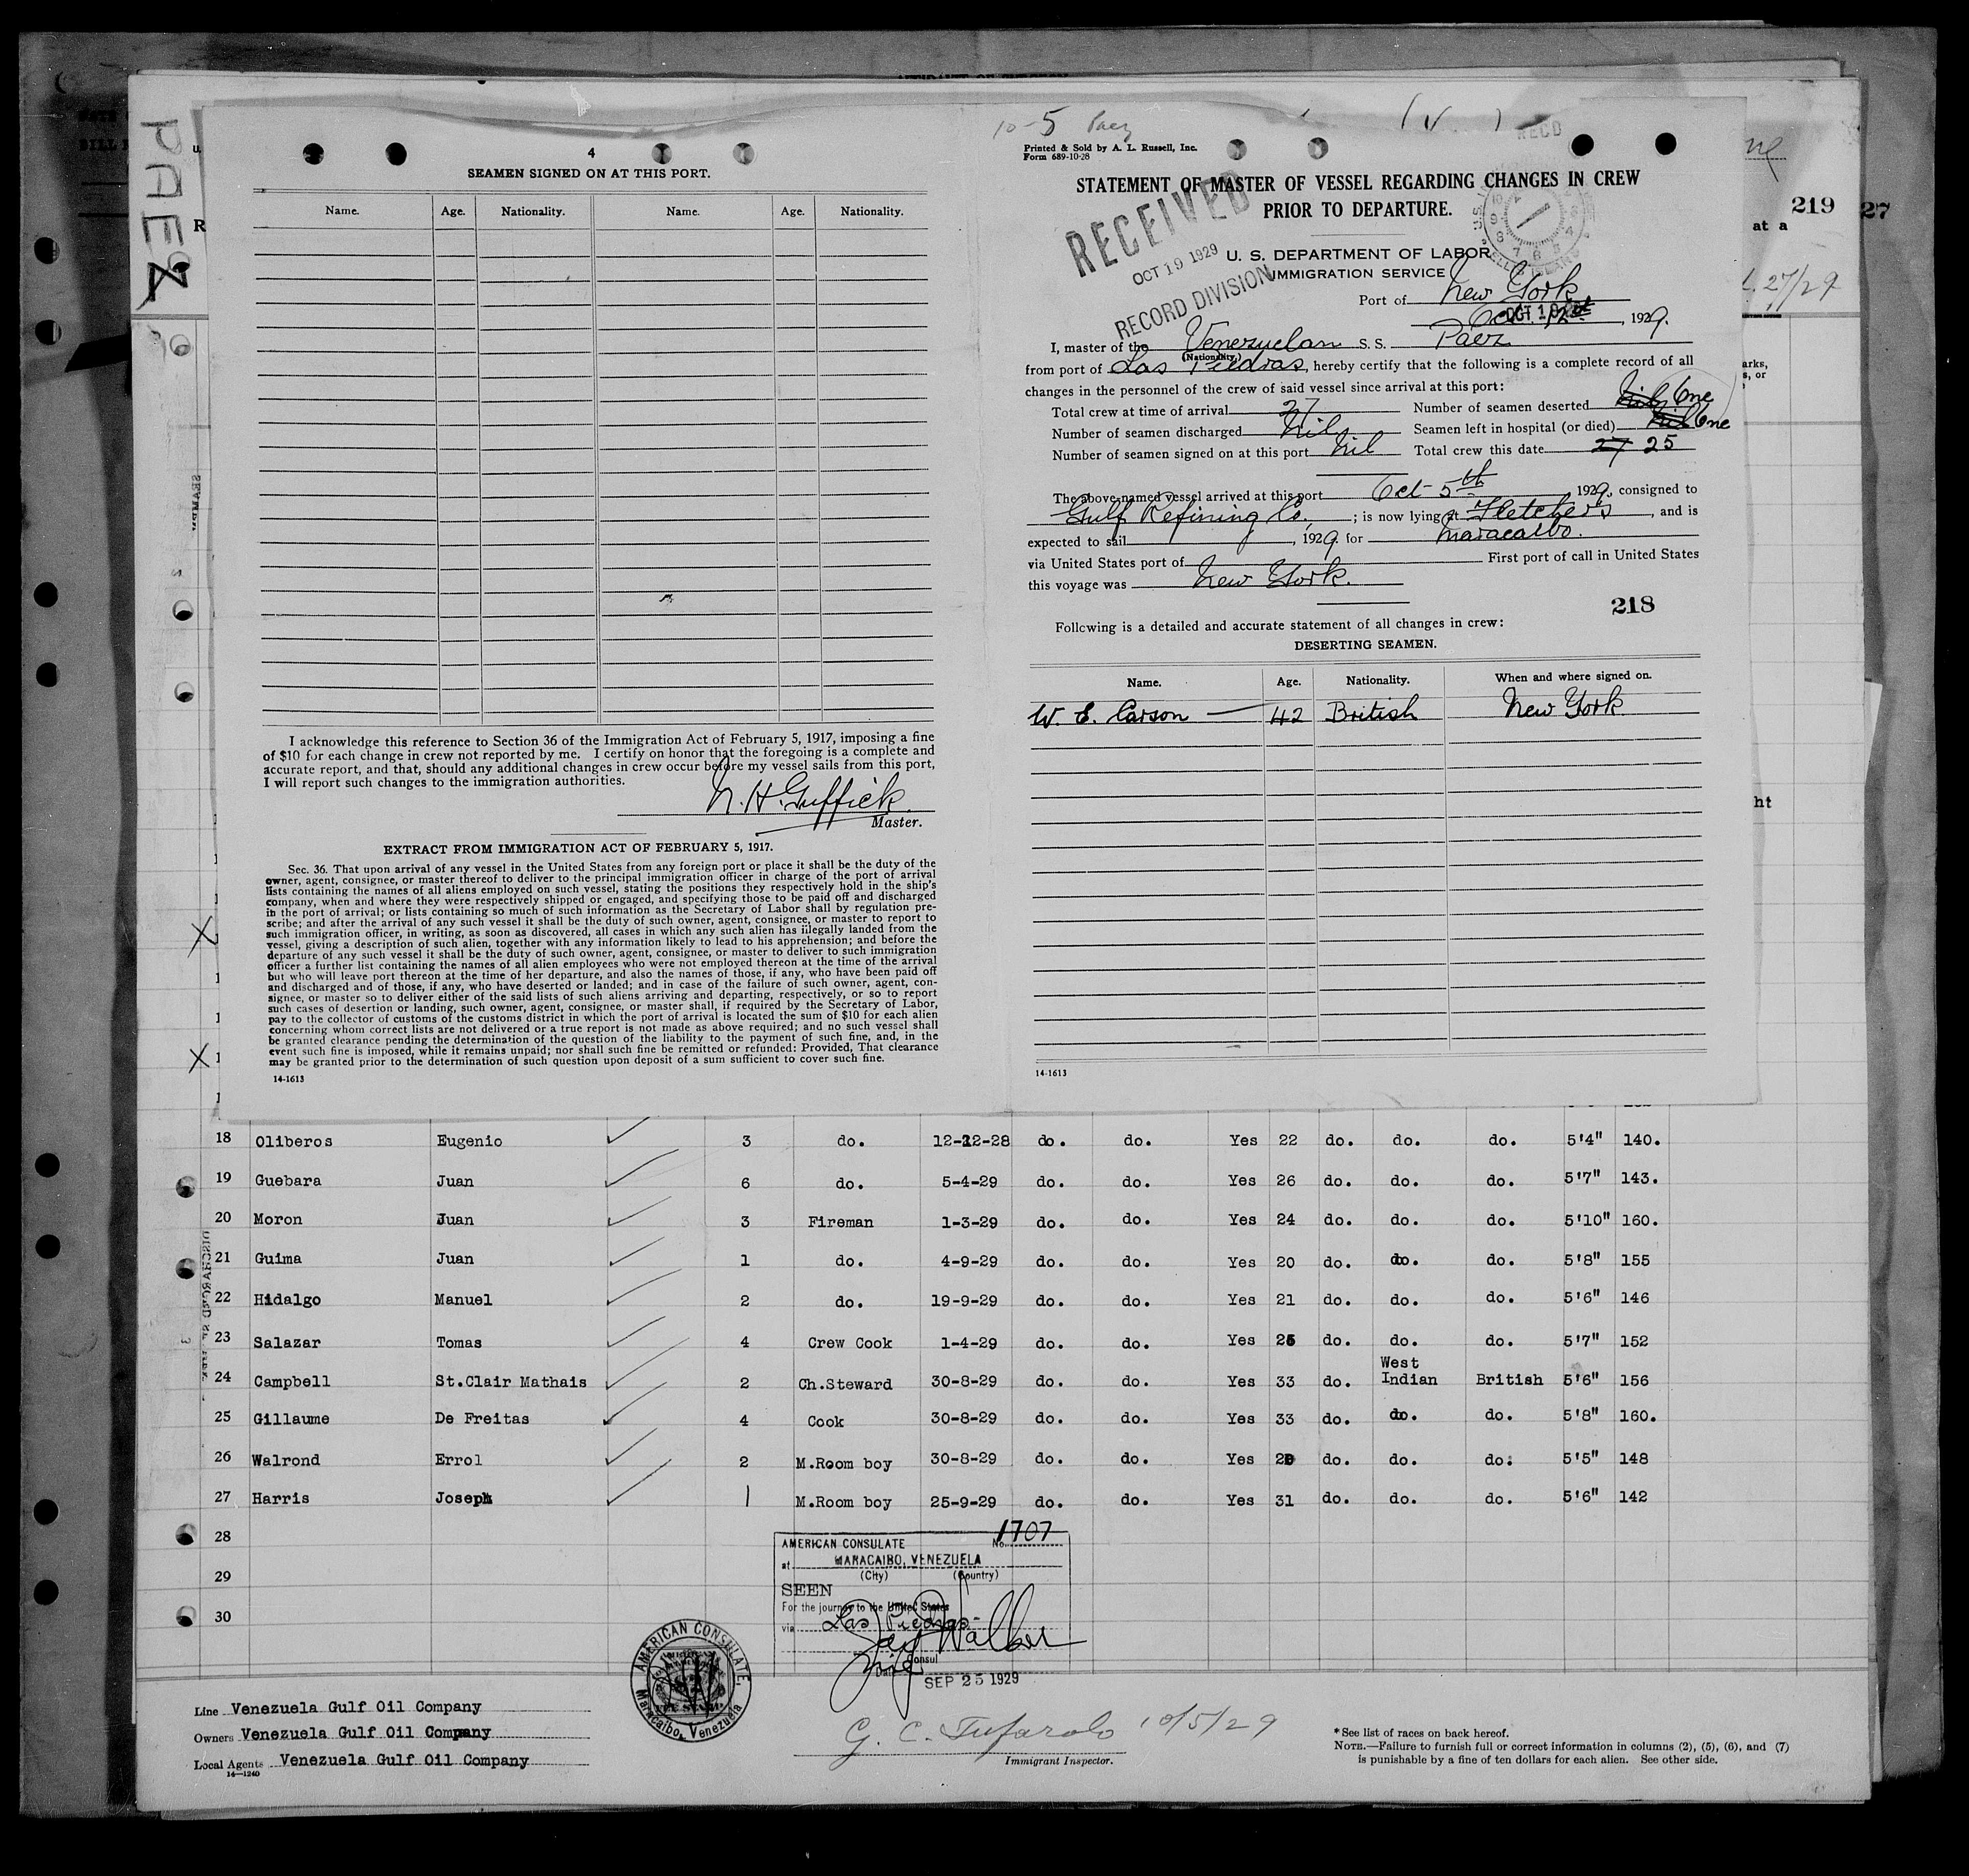 PAEZ
4
SEAMEN SIGNED ON AT THIS PORT.
Name. Age. Nationality. Name. Age. Nationality.
I acknowledge this reference to Section 36 of the Immigration Act of February 5, 1917, imposing a fine
of $10 for each change in crew not reported by me. I certify on honor that the foregoing is a complete and
accurate report, and that, should any additional changes in crew occur before my vessel sails from this port,
I will report such changes to the immigration authorities.
N. H. Guffick
Master.
EXTRACT FROM IMMIGRATION ACT OF FEBRUARY 5, 1917.
Sec. 36. That upon arrival of any vessel in the United States from any foreign port or place it shall be the duty of the
owner, agent, consignee, or master thereof to deliver to the principal immigration officer in charge of the port of arrival
lists containing the names of all aliens employed on such vessel, stating the positions they respectively hold in the ship's
company, when and where they were respectively shipped or engaged, and specifying those to be paid off and discharged
in the port of arrival; or lists containing so much of such information as the Secretary of Labor shall by regulation pre-
scribe; and after the arrival of any such vessel it shall be the duty of such owner, agent, consignee, or master to report to
such immigration officer, in writing, as soon as discovered, all cases in which any such alien has illegally landed from the
vessel, giving a description of such alien, together with any information likely to lead to his apprehension; and before the
departure of any such vessel it shall be the duty of such owner, agent, consignee, or master to deliver to such immigration
officer a further list containing the names of all alien employees who were not employed thereon at the time of the arrival
but who will leave port thereon at the time of her departure, and also the names of those, if any, who have been paid off
and discharged and of those, if any, who have deserted or landed; and in case of the failure of such owner, agent, con-
signee, or master so to deliver either of the said lists of such aliens arriving and departing, respectively, or so to report
such cases of desertion or landing, such owner, agent, consignee, or master shall, if required by the Secretary of Labor,
pay to the collector of customs of the customs district in which the port of arrival is located the sum of $10 for each alien
concerning whom correct lists are not delivered or a true report is not made as above required; and no such vessel shall
be granted clearance pending the determination of the question of the liability to the payment of such fine, and, in the
event such fine is imposed, while it remains unpaid; nor shall such fine be remitted or refunded: Provided, That clearance
may be granted prior to the determination of such question upon deposit of a sum sufficient to cover such fine.
14-1613
10-5 Paez
Printed & Sold by A. L. Russell, Inc.
Form 689-10-28
RECD
STATEMENT OF MASTER OF VESSEL REGARDING CHANGES IN CREW
PRIOR TO DEPARTURE.
RECEIVED
OCT 19 1929
RECORD DIVISION
U. S. DEPARTMENT OF LABOR
IMMIGRATION SERVICE
Port of New York
Oct. 12th, 1929.
I, master of the Venezuelan S. S. Paez
(Nationality)
from port of Las Piedras, hereby certify that the following is a complete record of all
changes in the personnel of the crew of said vessel since arrival at this port:
Total crew at time of arrival 27 Number of seamen deserted Nil One
Number of seamen discharged Nil Seamen left in hospital (or died) Nil One
Number of seamen signed on at this port Nil Total crew this date 27 25
The above-named vessel arrived at this port Oct 5th 1929, consigned to
Gulf Refining Co, ; is now lying at Fletchers, and is
expected to sail , 1929 for Maracaibo.
via United States port of First port of call in United States
this voyage was New York.
218
Following is a detailed and accurate statement of all changes in crew:
DESERTING SEAMEN.
Name. Age. Nationality. When and where signed on.
W. E. Carson 42 British New York
14-1613
219
27
at a
27/29
ht
18 Oliberos Eugenio 3 do. 12-12-28 do. do. Yes 22 do. do. do. 5'4" 140.
19 Guebara Juan 6 do. 5-4-29 do. do. Yes 26 do. do. do. 5'7" 143.
20 Moron Juan 3 Fireman 1-3-29 do. do. Yes 24 do. do. do. 5'10" 160.
21 Guima Juan 1 do. 4-9-29 do. do. Yes 20 do. do. do. 5'8" 155
22 Hidalgo Manuel 2 do. 19-9-29 do. do. Yes 21 do. do. do. 5'6" 146
23 Salazar Tomas 4 Crew Cook 1-4-29 do. do. Yes 25 do. do. do. 5'7" 152
24 Campbell St.Clair Mathais 2 Ch.Steward 30-8-29 do. do. Yes 33 do. West Indian British 5'6" 156
25 Gillaume De Freitas 4 Cook 30-8-29 do. do. Yes 33 do. do. do. 5'8" 160.
26 Walrond Errol 2 M.Room boy 30-8-29 do. do. Yes do. do. do. 5'5" 148
27 Harris Joseph 1 M.Room boy 25-9-29 do. do. Yes 31 do. do. do. 5'6" 142
28
29
30
AMERICAN CONSULATE No. 1707
at MARACAIBO, VENEZUELA
(City) (Country)
SEEN
For the journey to the United States
via Las Piedras
Walker
Consul
Date SEP 25 1929
AMERICAN CONSULATE, Maracaibo, Venezuela
Line Venezuela Gulf Oil Company
Owners Venezuela Gulf Oil Company
Local Agents Venezuela Gulf Oil Company
14-1240
G. C. Tufarolo 10/5/29
Immigrant Inspector.
*See list of races on back hereof.
NOTE.—Failure to furnish full or correct information in columns (2), (5), (6), and (7)
is punishable by a fine of ten dollars for each alien. See other side.